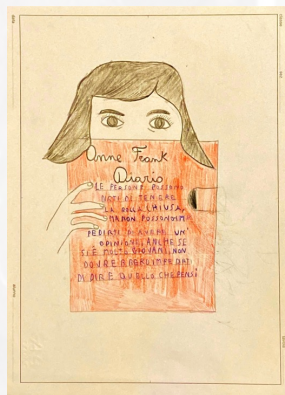 Anne Frank
Diario
LE PERSONE POSSONO
DI TENERE
LA BOCCA CHIUSA,
MA NON POSSONO IM
PEDIRTI DI AVERE UN'
OPINIONE, ANCHE SE
SEI MOLTO GIOVANE, NON
DI DIRE QUELLO CHE PENSI